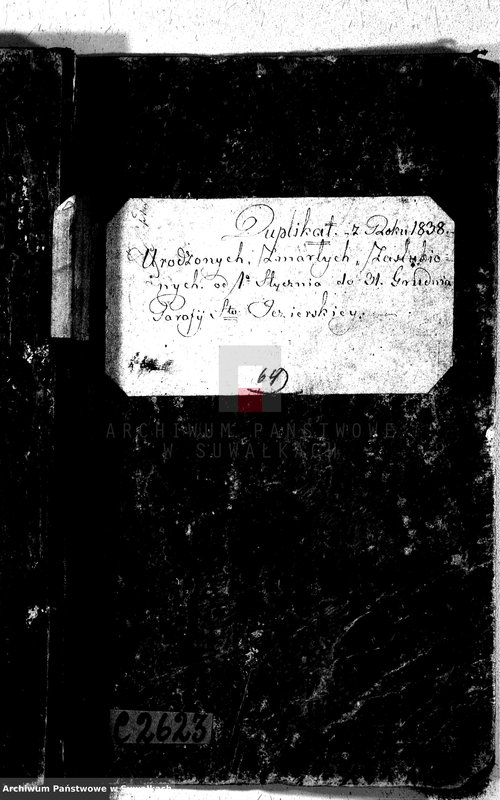 Duplikat z Roku 1838.
Urodzonych, Zmarłych, Zaślubio-
nych od 1º Stycznia do 31. Grudnia
Parafij Sto Jezierskiey.
64
ARCHIWUM PAŃSTWOWE
W SUWAŁKACH
C2623
Archiwum Państwowe w Suwałkach